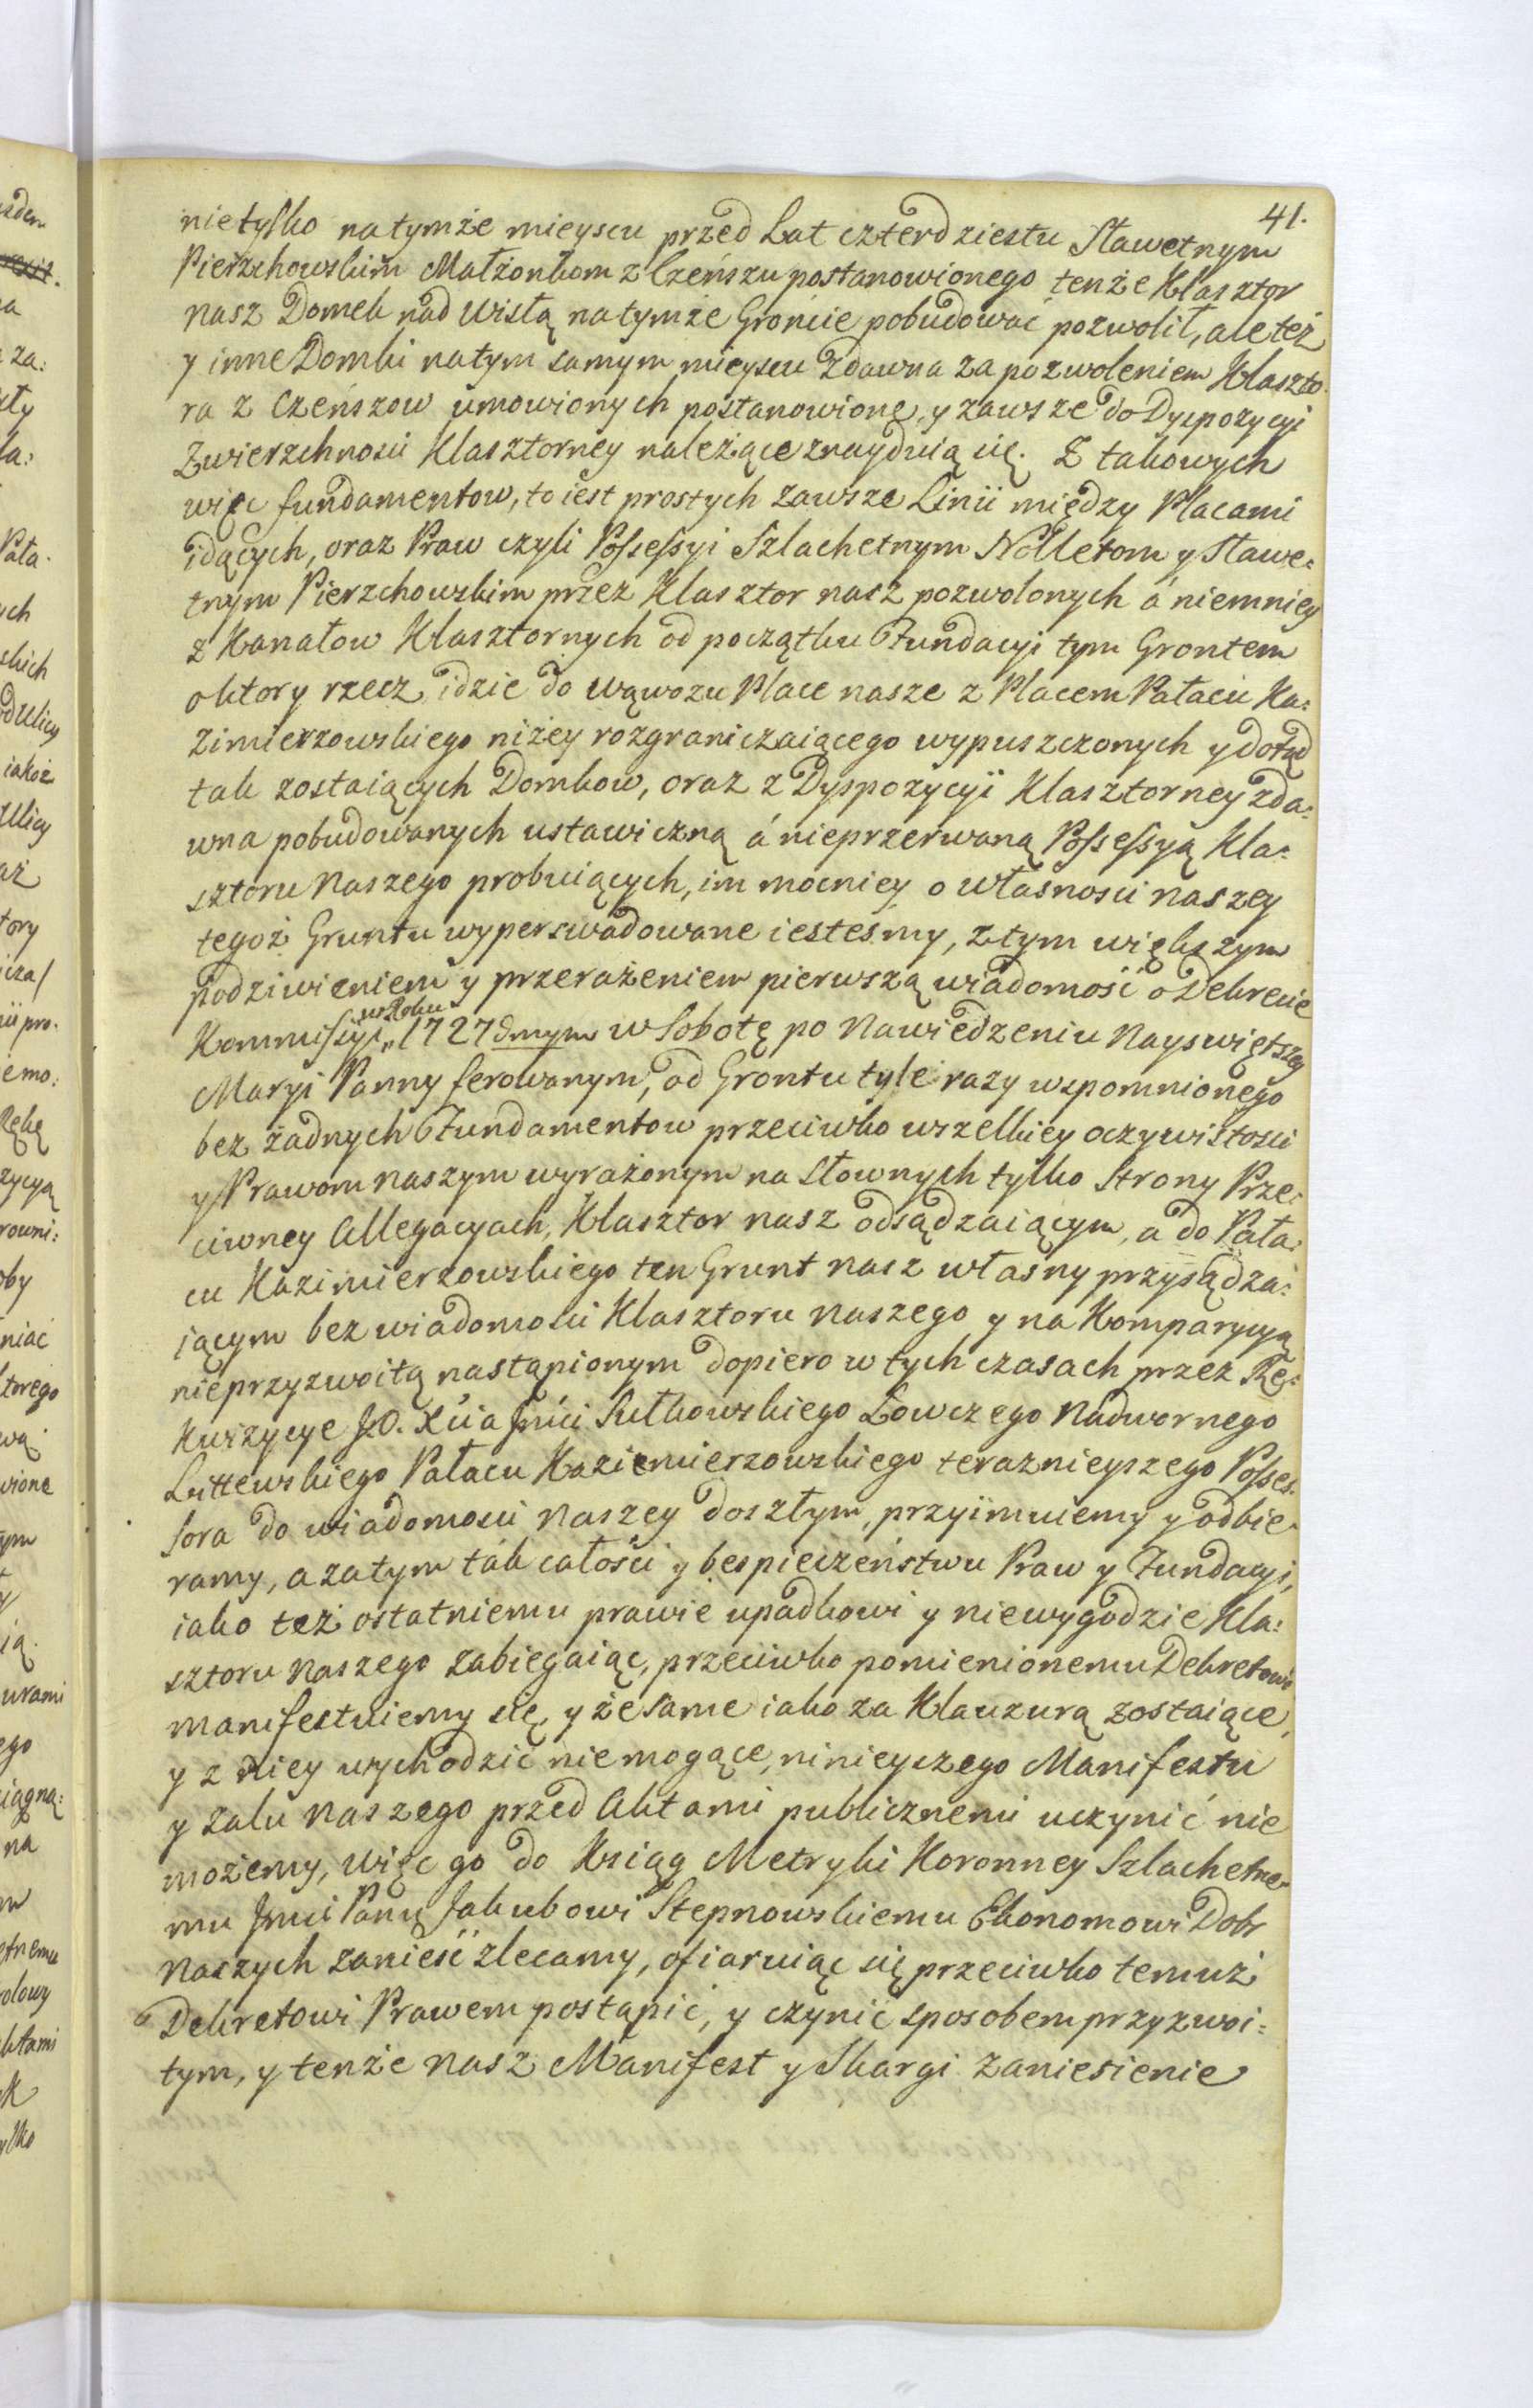 41.
nietylko natymże mieyscu przed Lat czterdziestu Sławetnym
Pierzchowskim Małżonkom z Czeńszu postanowionego tenże Klasztor
nasz Domek nad Wisłą natymże Gróńcie pobudować pozwolił, ale też
y inne Domki natym samym mieyscu zdawna za pozwoleniem Klaszto-
ra z Czeńszow umowionych postanowione, y zawsze do Dyspozycyi
Zwierzchnosci Klasztorney należące znayduią się. Z takowych
więc fundamentow, to iest prostych zawsze Linii między Placami
idących, oraz Praw czyli Possessyi Szlachetnym Nolletom y Sławe:
tnym Pierzchowskim przez Klasztor nasz pozwolonych á niemniey
z Kanałow Klasztornych od początku Fundacyi tym Grontem
o ktory rzecz idzie do wąwozu Place nasze z Placem Pałacu Ka:
zimierzowskiego niżey rozgraniczaiącego wypuszczonych y dotąd
tak zostaiących Domkow, oraz z Dyspozycyi Klasztorney zda:
wna pobudowanych ustawiczną á nieprzerwaną Possessyą Kla:
sztoru Naszego probuiących, im mocniey o własnosci naszey
tegoż Gruntu wyperswadowane iesteśmy, z tym większym
podziwieniem y przerażeniem pierwszą wiadomość o Dekrecie
Kommissyi „ w Roku 1727dmym w Sobotę po Nawiedzeniu Nayswiętszey
Maryi Panny ferowanym, od Grontu tyle razy wspomnionego
bez żadnych Fundamentow przeciwko wszelkiey oczywistosci
y Prawom naszym wyrażonym na słownych tylko Strony Prze:
ciwney Allegacyach, Klasztor nasz odsądzaiącym, a do Pała:
cu Kazimierzowskiego ten Grunt nasz własny przysądza:
iącym bez wiadomosci Klasztoru Naszego y na Komparycyą
nieprzyzwoitą nastąpionym dopiero w tych czasach przez Rę:
kwizycye J.O. Xcia Jmci Sułkowskiego Łowczego Nadwornego
Littewskiego Pałacu Kaziemierzowskiego teraznieyszego Posses.
sora do wiadomosci Naszey doszłym, przyimuiemy y odbie-
ramy, a zatym ták całości y bespieczeństwu Praw y Fundacyi,
iako też ostatniemu prawie upadkowi y niewygodzie Kla:
sztoru Naszego zabiegaiąc, przeciwko pomienionemu Dekretowi
manifestuiemy się, y że same iako za Klauzurą zostaiące,
y z niey wychodzić niemogące, ninieyszego Manifestu
y żalu Naszego przed Aktami publicznemi uczynić nie
możemy, więc go do Ksiąg Metryki Koronney Szlachetne-
mu Jmci Panu Jakubowi Stępnowskiemu Ekonomowi Dobr
Naszych zanieść zlecamy, ofiaruiąc się przeciwko temuż
Dekretowi Prawem postąpić, y czynić sposobem przyzwoi:
tym, y tenże Nasz Manifest y Skargi zaniesienie